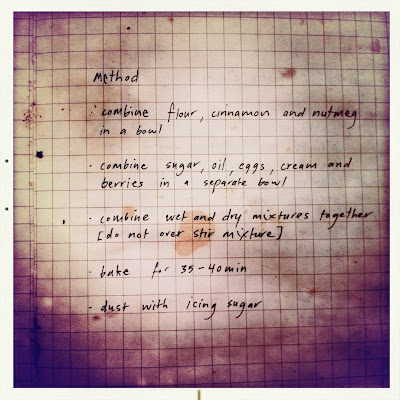 Method
· combine flour, cinnamon and nutmeg
in a bowl
· combine sugar, oil, eggs, cream and
berries in a separate bowl
· combine wet and dry mixtures together
[do not over stir mixture]
· bake for 35-40min
· dust with icing sugar